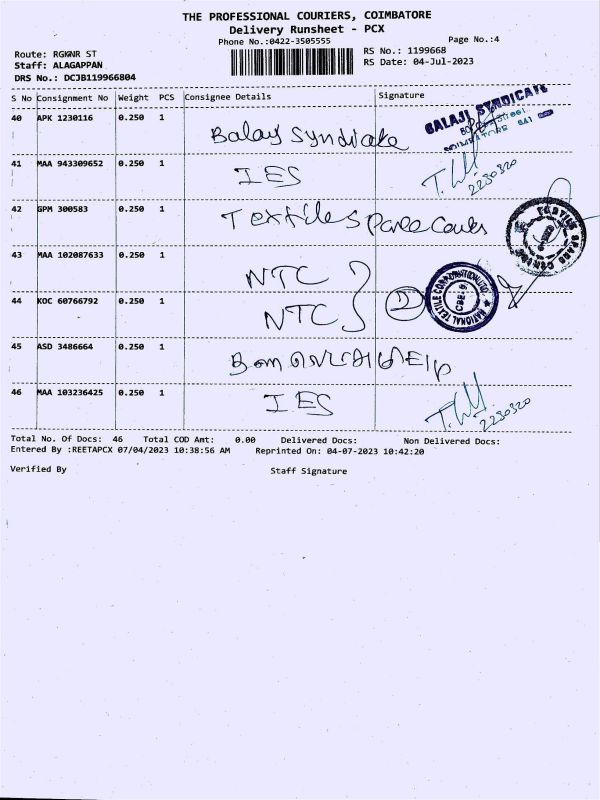 THE PROFESSIONAL COURIERS, COIMBATORE
Delivery Runsheet - PCX
Phone No.:0422-3505555
Page No.:4
Route: RGKNR ST
RS No.: 1199668
Staff: ALAGAPPAN
RS Date: 04-Jul-2023
DRS No.: DCJB119966804
S No Consignment No Weight PCS Consignee Details Signature
40 APK 1230116 0.250 1 Balaji Syndicate
BALAJI SYNDICATE
Street
COIMBATORE 641
41 MAA 943309652 0.250 1 IES
2230320
42 GPM 300583 0.250 1 Textiles
43 MAA 102087633 0.250 1 NTC
44 KOC 60766792 0.250 1 NTC
NATIONAL TEXTILE CORPORATION
CBE
2
45 ASD 3486664 0.250 1
46 MAA 103236425 0.250 1 IES
2230320
Total No. Of Docs: 46 Total COD Amt: 0.00 Delivered Docs: Non Delivered Docs:
Entered By :REETAPCX 07/04/2023 10:38:56 AM Reprinted On: 04-07-2023 10:42:20
Verified By Staff Signature